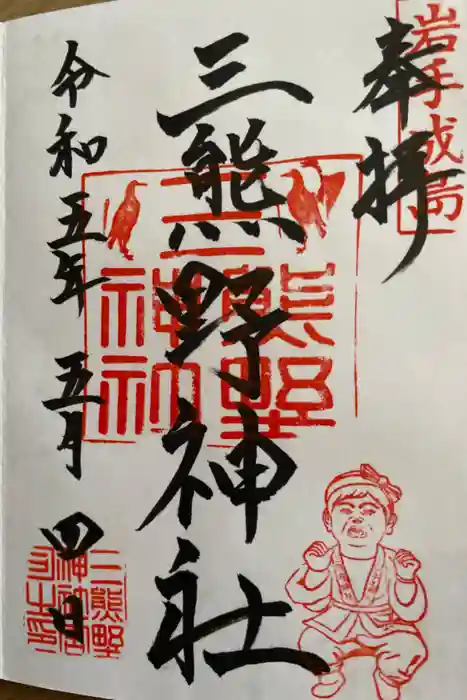 岩手成島
奉拝
三熊野神社
三熊野神社
令和五年五月四日
三熊野
神社